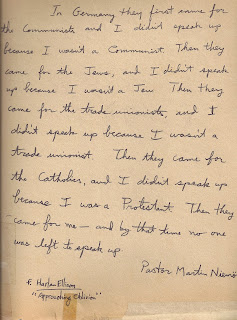 In Germany they first came for
the Communists and I didn't speak up
because I wasn't a Communist. Then they
came for the Jews, and I didn't speak
up because I wasn't a Jew Then they
came for the trade unionists, and I
didn't speak up because I wasn't a
trade unionist. Then they came for
the Catholics, and I didn't speak up
because I was a Protestant. Then they
came for me — and by that time no one
was left to speak up
Pastor Martin
f. Harlan Ellison
"Approaching Oblivion"